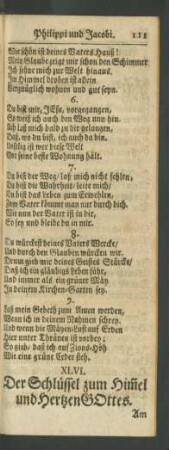 Philippi und Jacobi. 111
Wie schön ist deines Vaters Hauß!
Mein Glaube zeigt mir schon den Schimmer
Ich sehne mich zur Welt hinaus.
Im Himmel droben ist allein
Vergnüglich wohnen und gut seyn.
6.
Du bist mir, JEsu, vorgegangen,
So weiß ich auch den Weg nun hin.
Ich laß mich bald zu dir gelangen,
Daß, wo du bist, ich auch da bin.
Unselig ist wer diese Welt
Vor seine beste Wohnung hält.
7.
Du bist der Weg/ laß mich nicht fehlen,
Du bist die Wahrheit/ leite mich/
Du bist das Leben zum Erwehlen,
Zum Vater kömmt man nur durch dich.
Wie nun der Vater ist in dir,
So sey und bleibe du in mir.
8.
Du würckest deines Vaters Wercke/
Und durch den Glauben würcken wir.
Drum gieb mir deines Geistes Stärcke/
Daß ich ein gläubigs Leben führ,
Und immer als ein grüner Mäy
In deinem Kirchen-Garten sey.
9.
Laß mein Gebeth zum Amen werden,
Wenn ich in deinem Nahmen schrey.
Und wenn die Mäyen-Lust auf Erden
Hier unter Thränen ist vorbey;
So gieb, daß ich auf Zions-Höh
Wie eine grüne Ceder steh.
XLVI.
Der Schlüssel zum Him̃el
und Hertzen GOttes.
Am